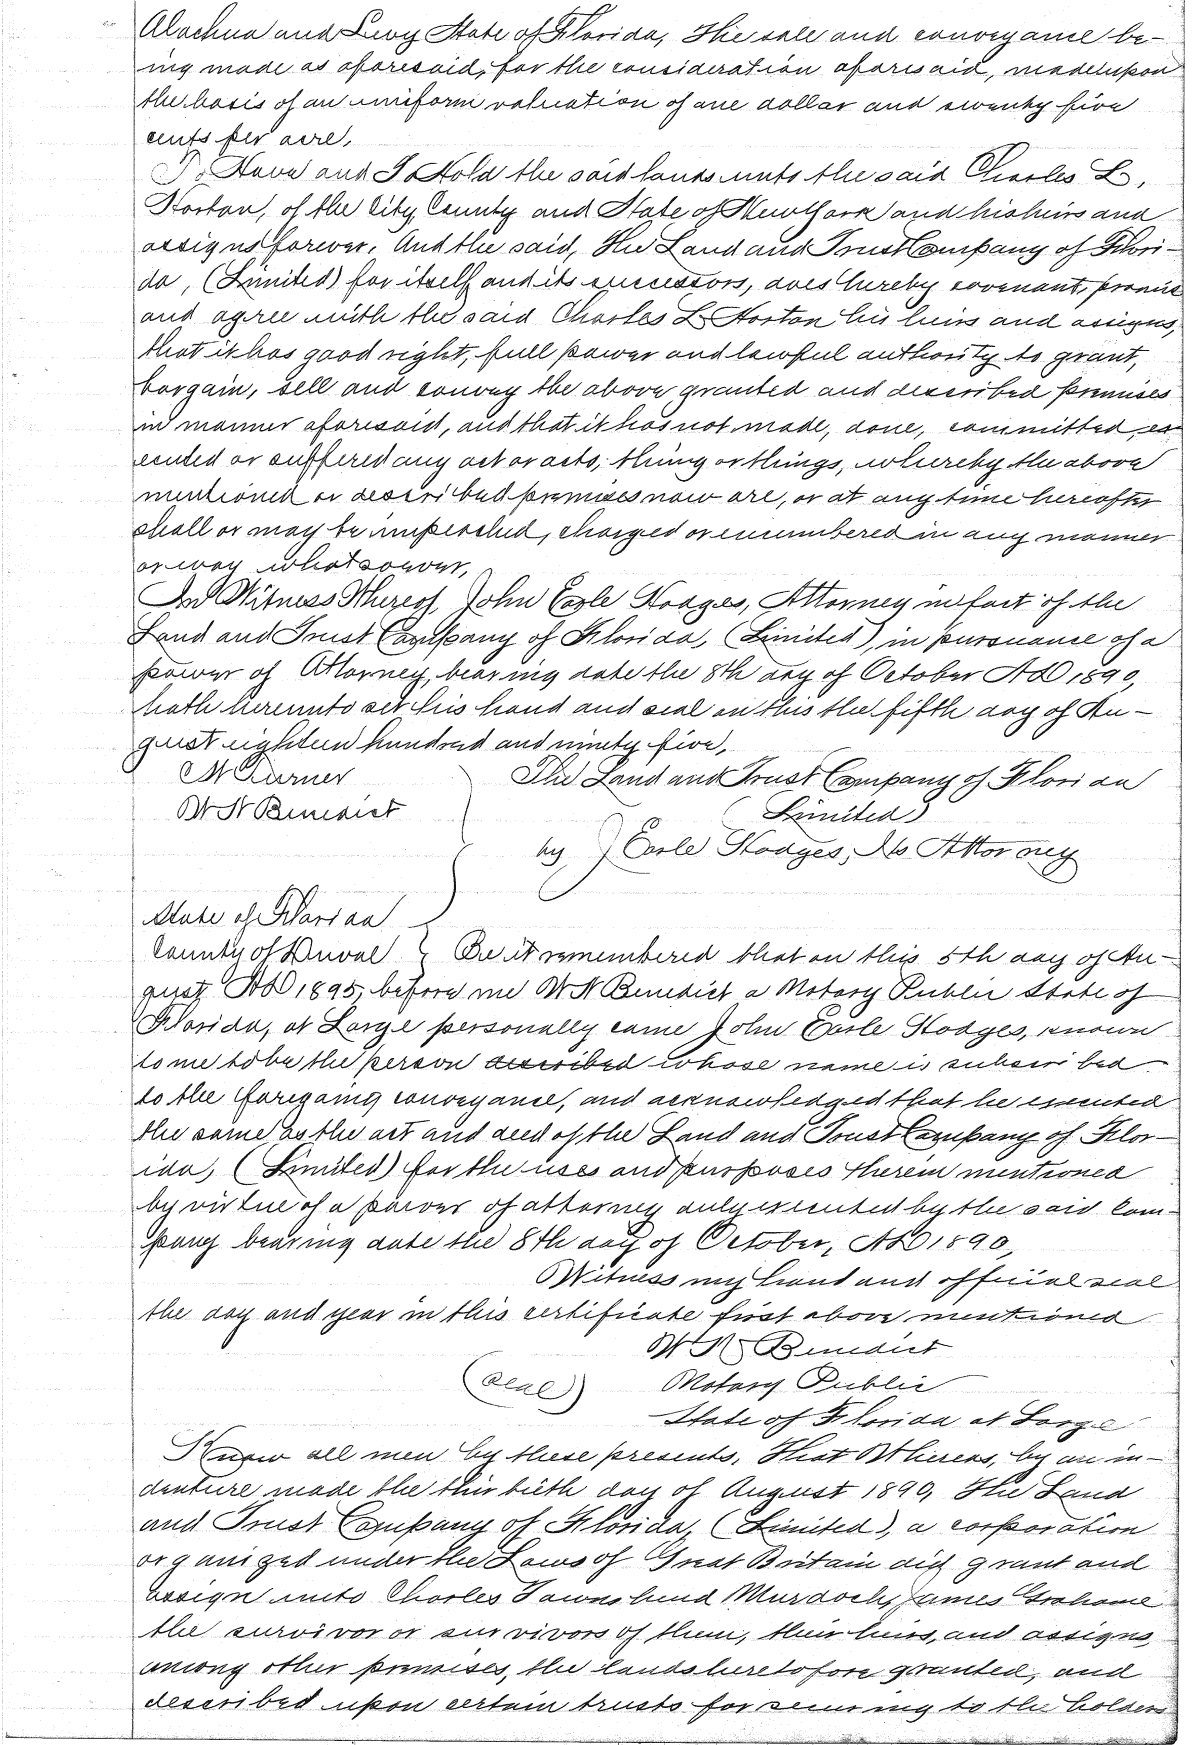 Alachua and Levy State of Florida, The sale and conveyance be-
ing made as aforesaid, for the consideration aforesaid, made upon
the basis of an uniform valuation of one dollar and twenty five
cents per acre,
To Have and To Hold the said lands unto the said Charles L.
Horton, of the City County and State of New York and his heirs and
assigns forever. And the said, The Land and Trust Company of Flori-
da, (Limited) for itself and its successors, does hereby covenant, promise
and agree with the said Charles L Horton his heirs and assigns,
that it has good right, full power and lawful authority to grant,
bargain, sell and convey the above granted and described premises
in manner aforesaid, and that it has not made, done, committed, ex
ecuted or suffered any act or acts, thing or things, whereby the above
mentioned or described premises now are, or at any time hereafter
shall or may be impeached, charged or encumbered in any manner
or way whatsoever,
In Witness Whereof, John Earle Hodges, Attorney in fact of the
Land and Trust Company of Florida, (Limited), in pursuance of a
power of Attorney, bearing date the 8th day of October AD 1890,
hath hereunto set his hand and seal on this the fifth day of Au-
gust eighteen hundred and ninety five,
Turner The Land and Trust Company of Florida
W N Benedict (Limited)
by J Earle Hodges, Its Attorney
State of Florida
County of Duval } Be it remembered that on this 5th day of Au-
gust AD 1895, before me W N Benedict a Notary Public State of
Florida, at Large personally came John Earle Hodges, known
to me to be the person described whose name is subscribed
to the foregoing conveyance, and acknowledged that he executed
the same as the act and deed of the Land and Trust Company of Flor-
ida, (Limited) for the uses and purposes therein mentioned
by virtue of a power of attorney duly executed by the said Com-
pany bearing date the 8th day of October, AD 1890,
Witness my hand and official seal
the day and year in this certificate first above mentioned
W N Benedict
(Seal) Notary Public
State of Florida at Large
Know all men by these presents, That Whereas, by an in-
denture made the thirtieth day of August 1890, The Land
and Trust Company of Florida, (Limited), a corporation
organized under the Laws of Great Britain did grant and
assign unto Charles Townshend Murdoch, James Grahame
the survivor or survivors of them, their heirs, and assigns,
among other premises, the lands heretofore granted, and
described upon certain trusts for securing to the holders